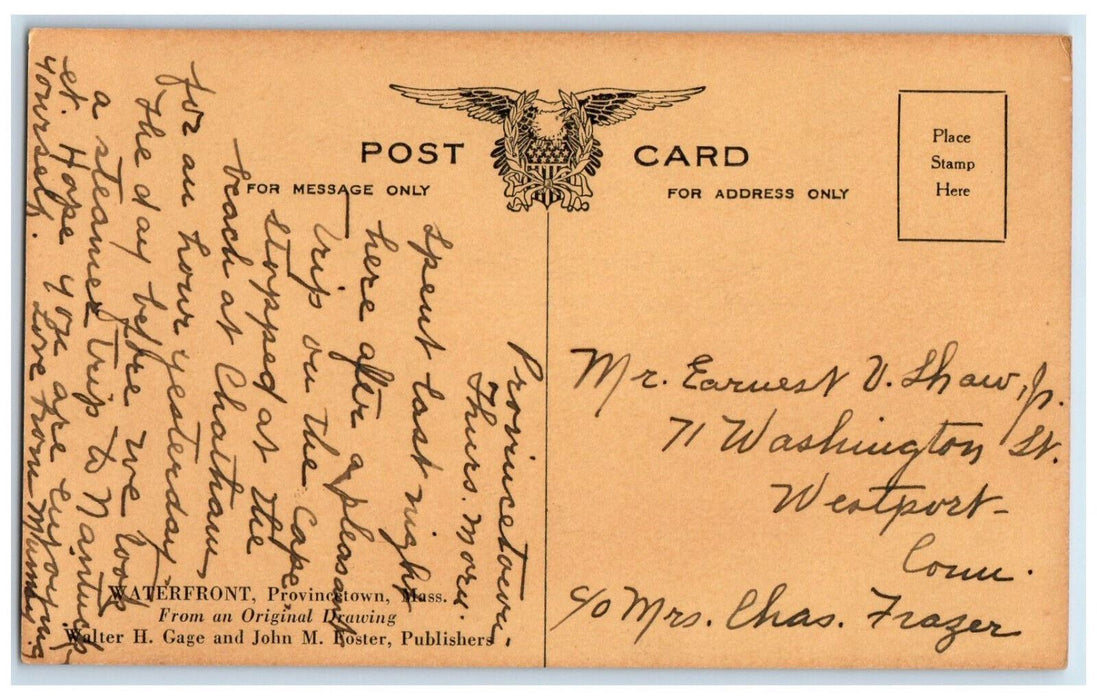 POST CARD
FOR MESSAGE ONLY
FOR ADDRESS ONLY
Place
Stamp
Here
Provincetown,
Thurs. Morn.
Spent last night
here after a pleasant
trip on the Cape,
stopped at the
beach at Chatham
for an hour yesterday,
The day before we took
a steamer trip to Nantuck-
et. Hope you are enjoying
yourself.
Love from Mummy.
Mr. Earnest V. Shaw, Jr.
71 Washington St.
Westport-
Conn.
c/o Mrs. Chas. Frazer
WATERFRONT, Provincetown, Mass.
From an Original Drawing
Walter H. Gage and John M. Foster, Publishers